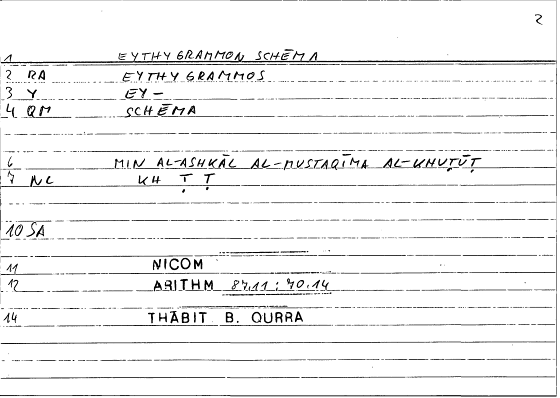 2
1 EYTHYGRAMMON SCHĒMA
2 RA EYTHYGRAMMOS
3 Y EY-
4 QM SCHĒMA
6 MIN AL-ASHKĀL AL-MUSTAQĪMA AL-KHUṬŪṬ
7 NL KH Ṭ Ṭ
10 SA
11 NICOM
12 ARITHM 87.11 : 70.14
14 THĀBIT B. QURRA